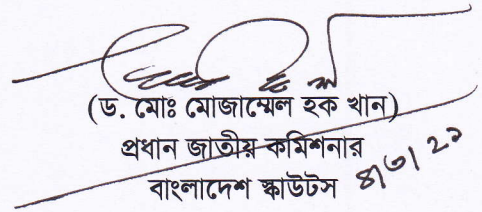 (ড. মোঃ মোজাম্মেল হক খান)
প্রধান জাতীয় কমিশনার
বাংলাদেশ স্কাউটস ৪/৩/২১